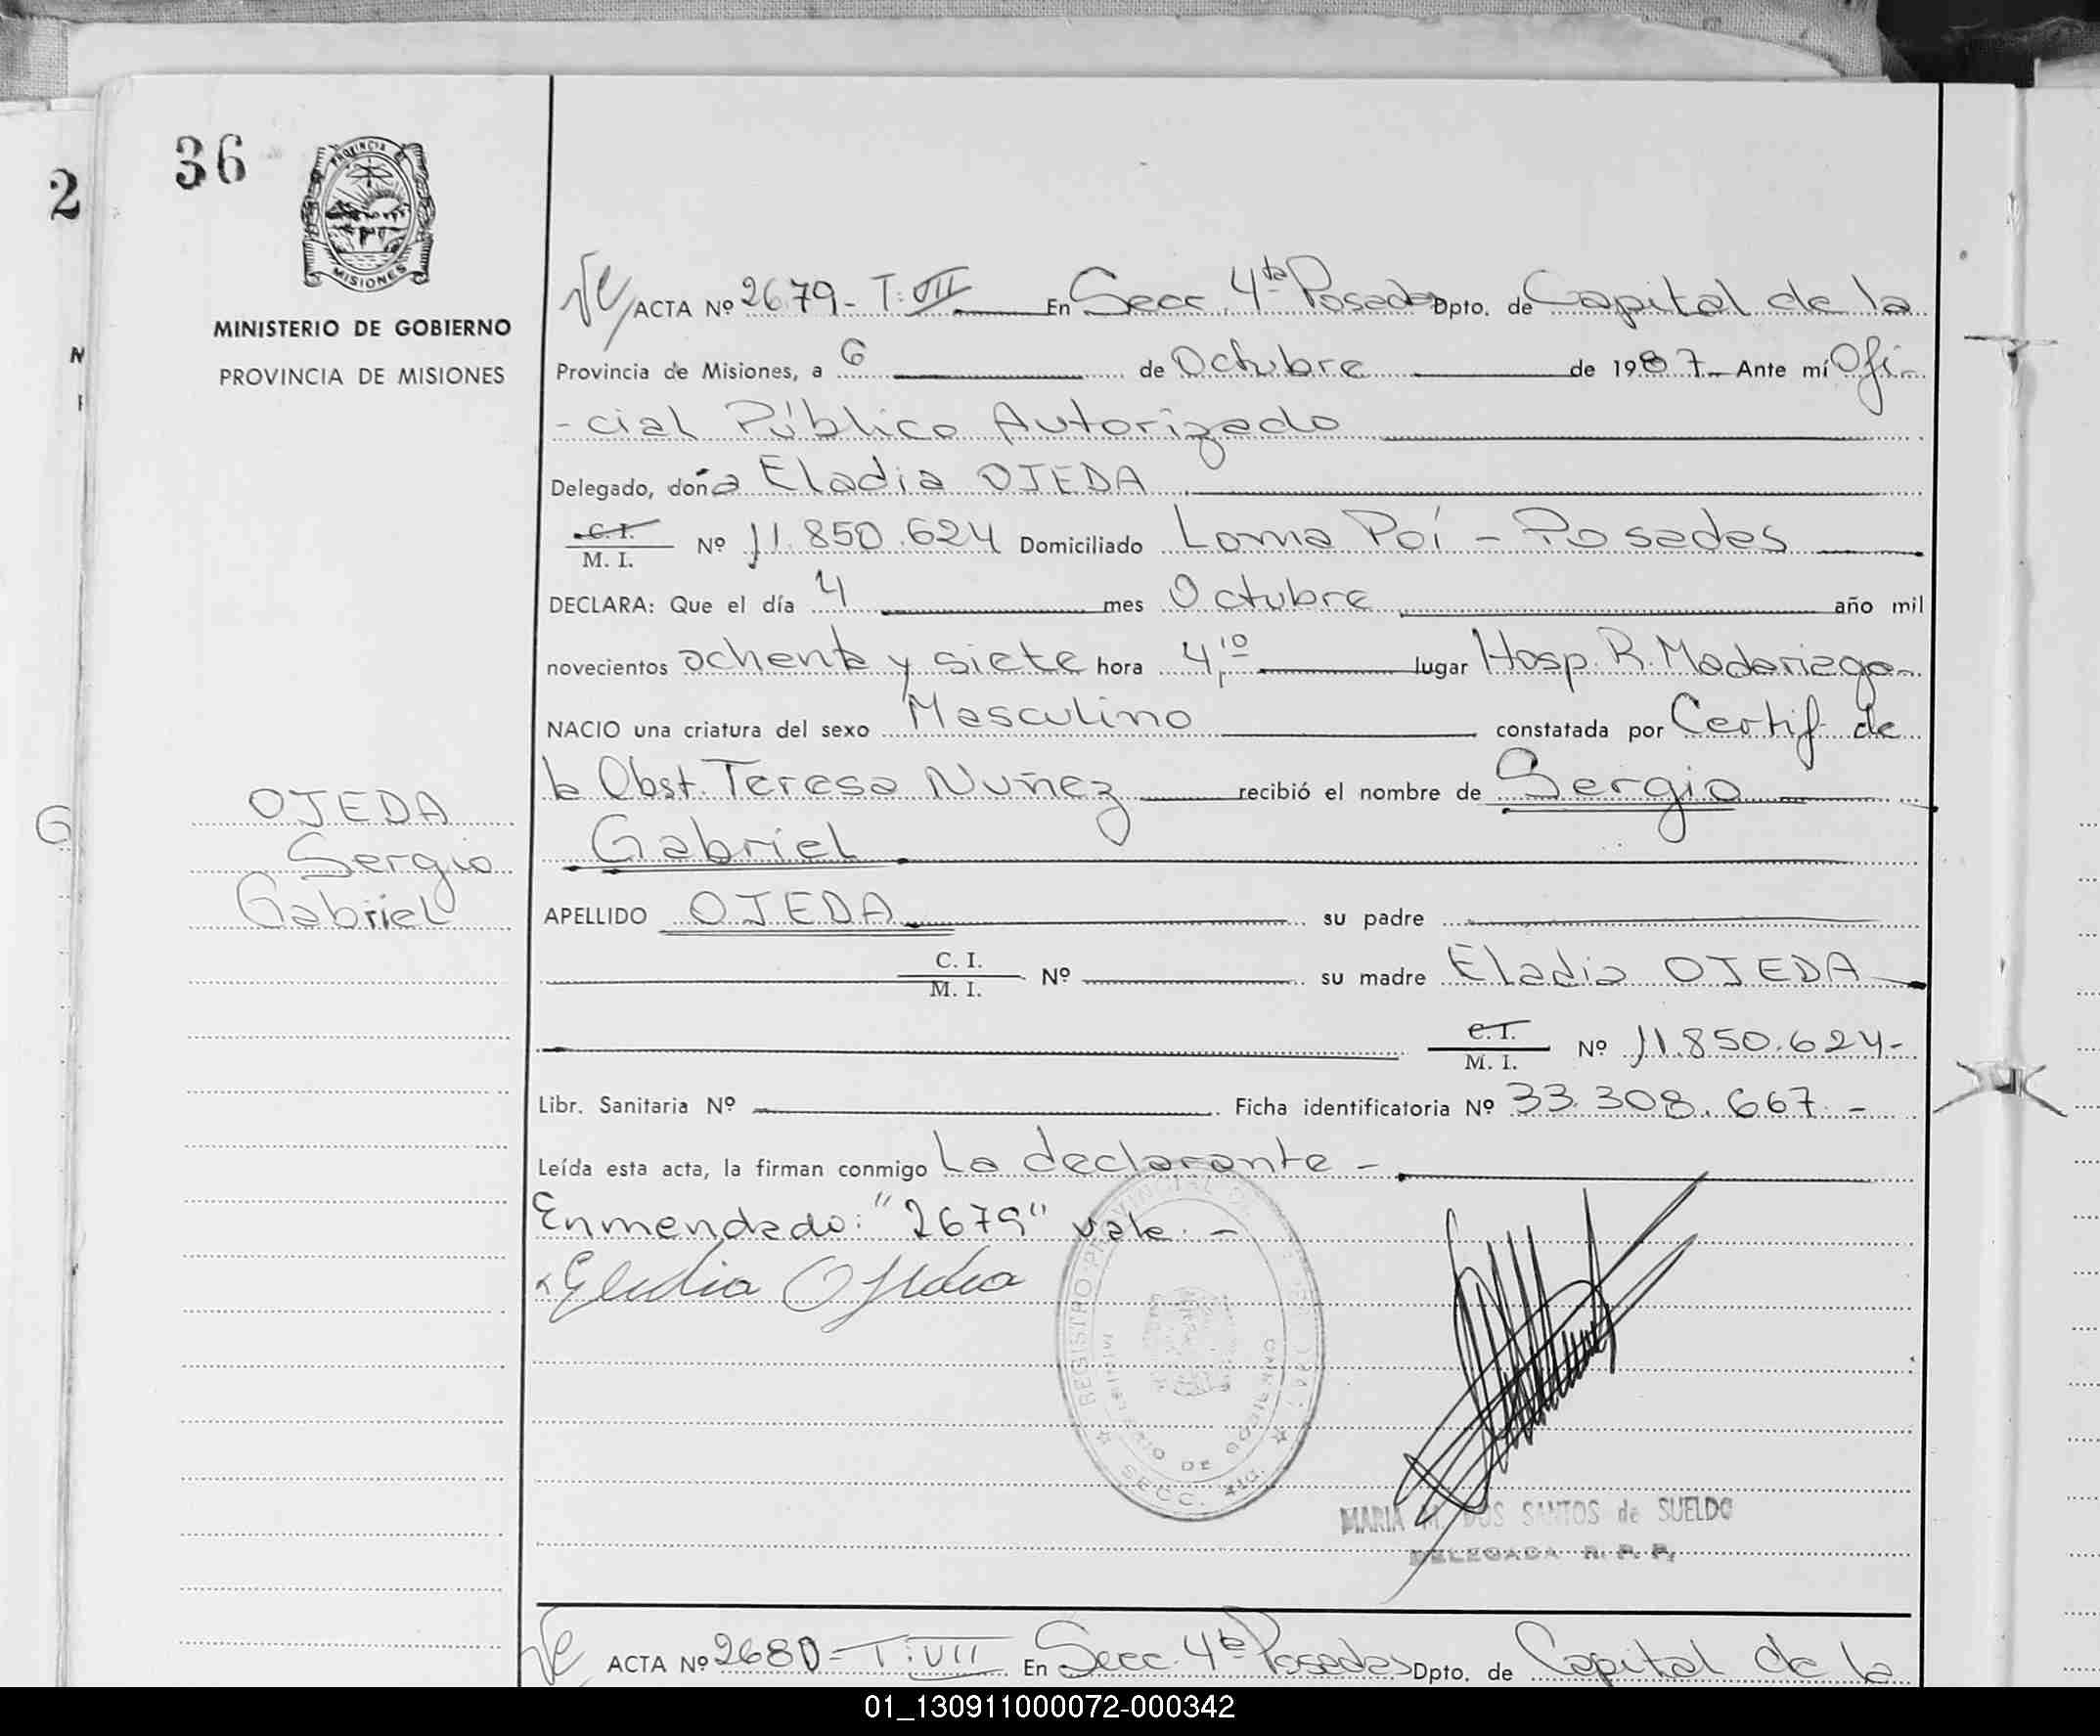 36
2
PROVINCIA DE
MISIONES
MINISTERIO DE GOBIERNO
PROVINCIA DE MISIONES
ACTA Nº 2679 - T: VII En Secc. 4ta Posadas Dpto. de Capital de la
Provincia de Misiones, a 6 de Octubre de 1987 Ante mí Ofi-
-cial Público Autorizado
Delegado, doña Eladia OJEDA
C. I.
M. I. Nº 11.850.624 Domiciliado Loma Poí - Posadas
DECLARA: Que el día 4 mes Octubre año mil
novecientos ochenta y siete hora 4,10 lugar Hosp. R. Madariaga
NACIO una criatura del sexo Masculino constatada por Certif de
la Obst. Teresa Nuñez recibió el nombre de Sergio
Gabriel
OJEDA
Sergio
Gabriel
APELLIDO OJEDA su padre
C. I.
M. I. Nº su madre Eladia OJEDA
C. I.
M. I. Nº 11.850.624-
Libr. Sanitaria Nº Ficha identificatoria Nº 33.308.667 -
Leída esta acta, la firman conmigo La declarante -
Enmendado: "2679" vale. -
Eladia Ojeda
REGISTRO PROVINCIAL DE LAS PERSONAS
MINISTERIO DE GOBIERNO
SECC. 4ta.
MARIA M. DOS SANTOS de SUELDO
DELEGADA R. P. P.
ACTA Nº 2680 - T: VII En Secc. 4ta Posadas Dpto. de Capital de la
01_130911000072-000342